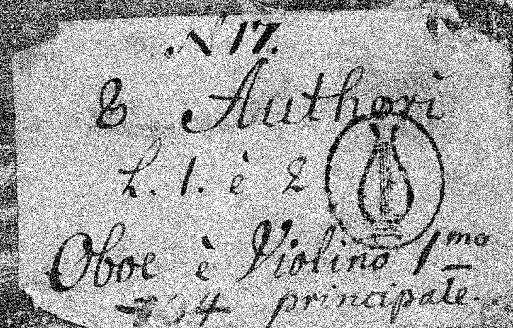 N 17.
8 Authori
L. 1. è 2
Oboe è Violino 1mo
principale.